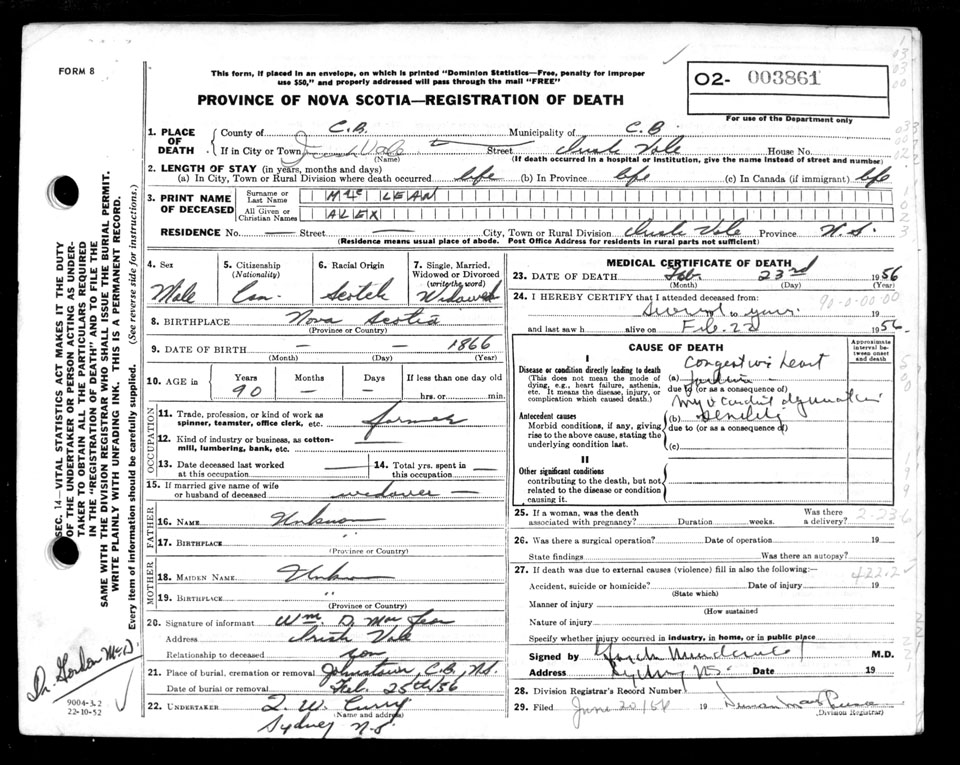 FORM 8
This form, if placed in an envelope, on which is printed "Dominion Statistics—Free, penalty for improper
use $50," and properly addressed will pass through the mail "FREE"
PROVINCE OF NOVA SCOTIA—REGISTRATION OF DEATH
O2- 003861
For use of the Department only
1. PLACE OF DEATH
County of C.B. Municipality of C.B.
If in City or Town Vale Street Irish Vale House No.
(Name) (If death occurred in a hospital or institution, give the name instead of street and number)
2. LENGTH OF STAY (in years, months and days)
(a) In City, Town or Rural Division where death occurred life (b) In Province life (c) In Canada (if immigrant) life
3. PRINT NAME OF DECEASED
Surname or Last Name McLEAN
All Given or Christian Names ALEX
RESIDENCE No. — Street — City, Town or Rural Division Irish Vale Province N.S.
(Residence means usual place of abode. Post Office Address for residents in rural parts not sufficient)
4. Sex Male
5. Citizenship (Nationality) Can
6. Racial Origin Scotch
7. Single, Married, Widowed or Divorced (write the word) Widowed
8. BIRTHPLACE Nova Scotia
(Province or Country)
9. DATE OF BIRTH — — 1866
(Month) (Day) (Year)
10. AGE in Years 90 Months — Days — If less than one day old
hrs. or min.
OCCUPATION
11. Trade, profession, or kind of work as
spinner, teamster, office clerk, etc. farmer
12. Kind of industry or business, as cotton-
mill, lumbering, bank, etc. —
13. Date deceased last worked at this occupation —
14. Total yrs. spent in this occupation —
15. If married give name of wife
or husband of deceased widower —
FATHER
16. NAME Unknown
17. BIRTHPLACE "
(Province or Country)
MOTHER
18. MAIDEN NAME Unknown
19. BIRTHPLACE "
(Province or Country)
20. Signature of informant Wm. D. Mac Lean
Address Irish Vale
Relationship to deceased son
21. Place of burial, cremation or removal Johnstown C.B., N.S.
Date of burial or removal Feb. 25th/56
22. UNDERTAKER T. W. Curry
(Name and address)
Sydney N.S.
MEDICAL CERTIFICATE OF DEATH
23. DATE OF DEATH Feb. 23rd 1956
(Month) (Day) (Year)
24. I HEREBY CERTIFY that I attended deceased from:
90-0-00-00
Several years 19
and last saw h alive on Feb. 22 1956.
CAUSE OF DEATH
Approximate interval between onset and death
I
Disease or condition directly leading to death
(This does not mean the mode of
dying, e.g., heart failure, asthenia,
etc. It means the disease, injury, or
complication which caused death.)
(a) Congestive heart
failure
due to (or as a consequence of)
Myocardial degeneration
Antecedent causes
Morbid conditions, if any, giving
rise to the above cause, stating the
underlying condition last.
(b) Senility
due to (or as a consequence of)
(c)
II
Other significant conditions
contributing to the death, but not
related to the disease or condition
causing it.
25. If a woman, was the death associated with pregnancy? Duration weeks. Was there a delivery?
2-236
26. Was there a surgical operation? Date of operation 19
State findings Was there an autopsy?
27. If death was due to external causes (violence) fill in also the following:—
422.2
Accident, suicide or homicide? Date of injury 19
(State which)
Manner of injury
(How sustained)
Nature of injury
Specify whether injury occurred in industry, in home, or in public place
Signed by M.D.
Address Sydney N.S. Date 19
28. Division Registrar's Record Number
29. Filed June 20/56 19
(Division Registrar)
SEC. 14—VITAL STATISTICS ACT MAKES IT THE DUTY
OF THE UNDERTAKER OR PERSON ACTING AS UNDER-
TAKER TO OBTAIN ALL THE PARTICULARS REQUIRED
IN THE "REGISTRATION OF DEATH" AND TO FILE THE
SAME WITH THE DIVISION REGISTRAR WHO SHALL ISSUE THE BURIAL PERMIT.
WRITE PLAINLY WITH UNFADING INK. THIS IS A PERMANENT RECORD.
Every item of information should be carefully supplied. (See reverse side for instructions.)
Dr. Gordon McD.
9004-3.2
22-10-52